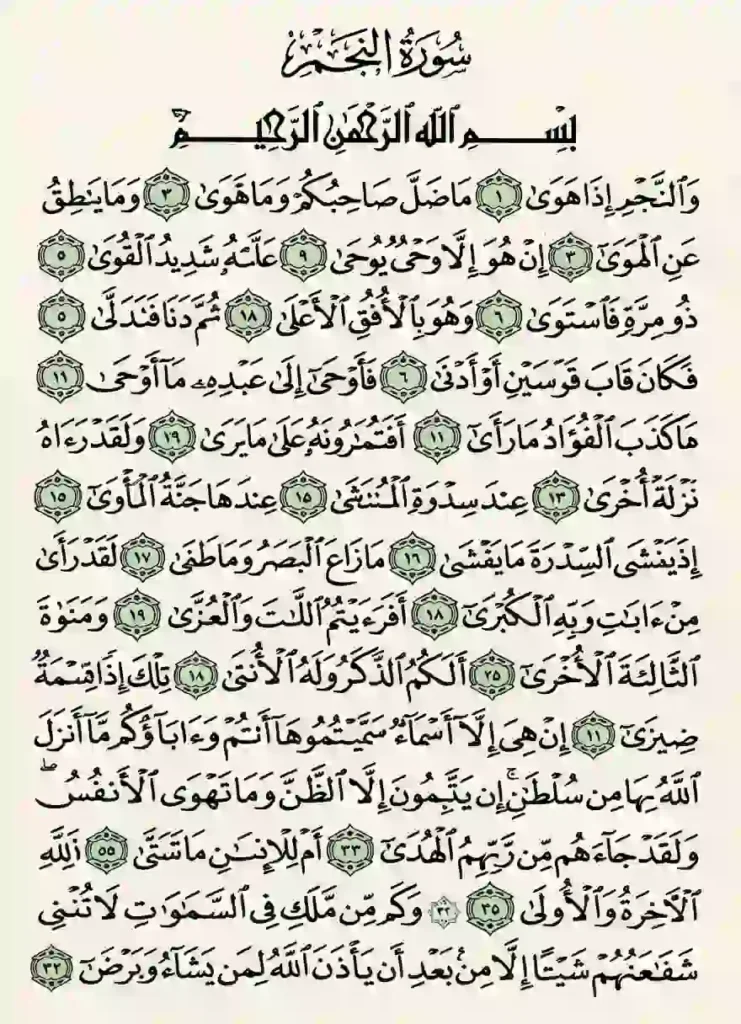 سُورَةُ النَجمِ
بِسْمِ ٱللَّهِ ٱلرَّحْمَٰنِ ٱلرَّحِيمِ
وَٱلنَّجْمِ إِذَا هَوَىٰ ١ مَا ضَلَّ صَاحِبُكُمْ وَمَا هَوَىٰ ٣ وَمَا يَنطِقُ
عَنِ ٱلْهَوَىٰٓ ٣ إِنْ هُوَ إِلَّا وَحْىٌ يُوحَىٰ ٩ عَلَّمَهُۥ شَدِيدُ ٱلْقُوَىٰ ٥
ذُو مِرَّةٍ فَٱسْتَوَىٰ ٦ وَهُوَ بِٱلْأُفُقِ ٱلْأَعْلَىٰ ١٨ ثُمَّ دَنَا فَنَدَلَّىٰ ٥
فَكَانَ قَابَ قَوْسَيْنِ أَوْ أَدْنَىٰ ٦ فَأَوْحَىٰٓ إِلَىٰ عَبْدِهِۦ مَآ أَوْحَىٰ ١١
هَا كَذَبَ ٱلْفُؤَادُ مَا رَأَىٰٓ ١١ أَفَتُمَٰرُونَهُۥ عَلَىٰ مَا يَرَىٰ ١٩ وَلَقَدْ رَءَاهُ
نَزْلَةً أُخْرَىٰ ١٣ عِندَ سِدْرَةِ ٱلْمُنتَهَىٰ ١٥ عِندَهَا جَنَّةُ ٱلْمَأْوَىٰٓ ١٥
إِذْ يَفْشَى ٱلسِّدْرَةَ مَا يَفْشَىٰ ١٦ مَا زَاعَ ٱلْبَصَرُ وَمَا طَفَىٰ ١٧ لَقَدْ رَأَىٰ
مِنْ ءَايَٰتِ وَبِّهِ ٱلْكُبْرَىٰٓ ١٨ أَفَرَءَيْتُمُ ٱللَّٰتَ وَٱلْعُزَّىٰ ١٩ وَمَنَوٰةَ
ٱلثَّالِثَةَ ٱلْأُخْرَىٰٓ ٢٥ أَلَكُمُ ٱلذَّكَرُ وَلَهُ ٱلْأُنثَىٰ ١٨ تِلْكَ إِذًا قِسْمَةٌ
ضِيزَىٰٓ ١١ إِنْ هِىَ إِلَّآ أَسْمَآءٌ سَمَّيْتُمُوهَآ أَنتُمْ وَءَابَآؤُكُم مَّآ أَنزَلَ
ٱللَّهُ بِهَا مِن سُلْطَٰنٍ ۚ إِن يَتَّبِعُونَ إِلَّا ٱلظَّنَّ وَمَا تَهْوَى ٱلْأَنفُسُ ۖ
وَلَقَدْ جَآءَهُم مِّن رَّبِّهِمُ ٱلْهُدَىٰٓ ٢٣ أَمْ لِلْإِنسَٰنِ مَا تَمَنَّىٰ ٥٥ فَلِلَّهِ
ٱلْـَٔاخِرَةُ وَٱلْأُولَىٰ ٣٥ ٣٢ وَكَم مِّن مَّلَكٍ فِى ٱلسَّمَٰوَٰتِ لَا تُغْنِى
شَفَٰعَتُهُمْ شَيْـًٔا إِلَّا مِنۢ بَعْدِ أَن يَأْذَنَ ٱللَّهُ لِمَن يَشَآءُ وَيَرْضَىٰٓ ٣٢